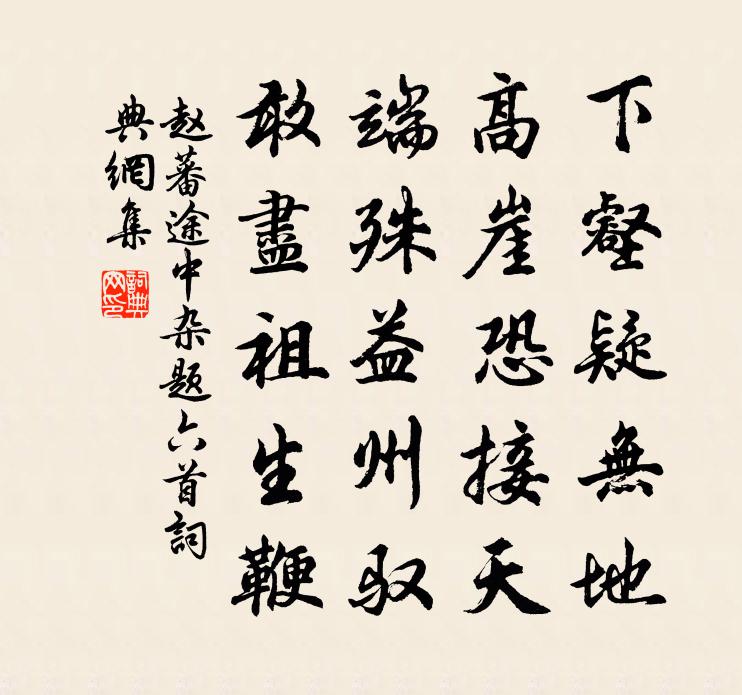 下壑疑無地
高崖恐接天
端殊益州驭
敢盡祖生鞭
赵蕃途中杂题六首詞
典網集
詞典
网印